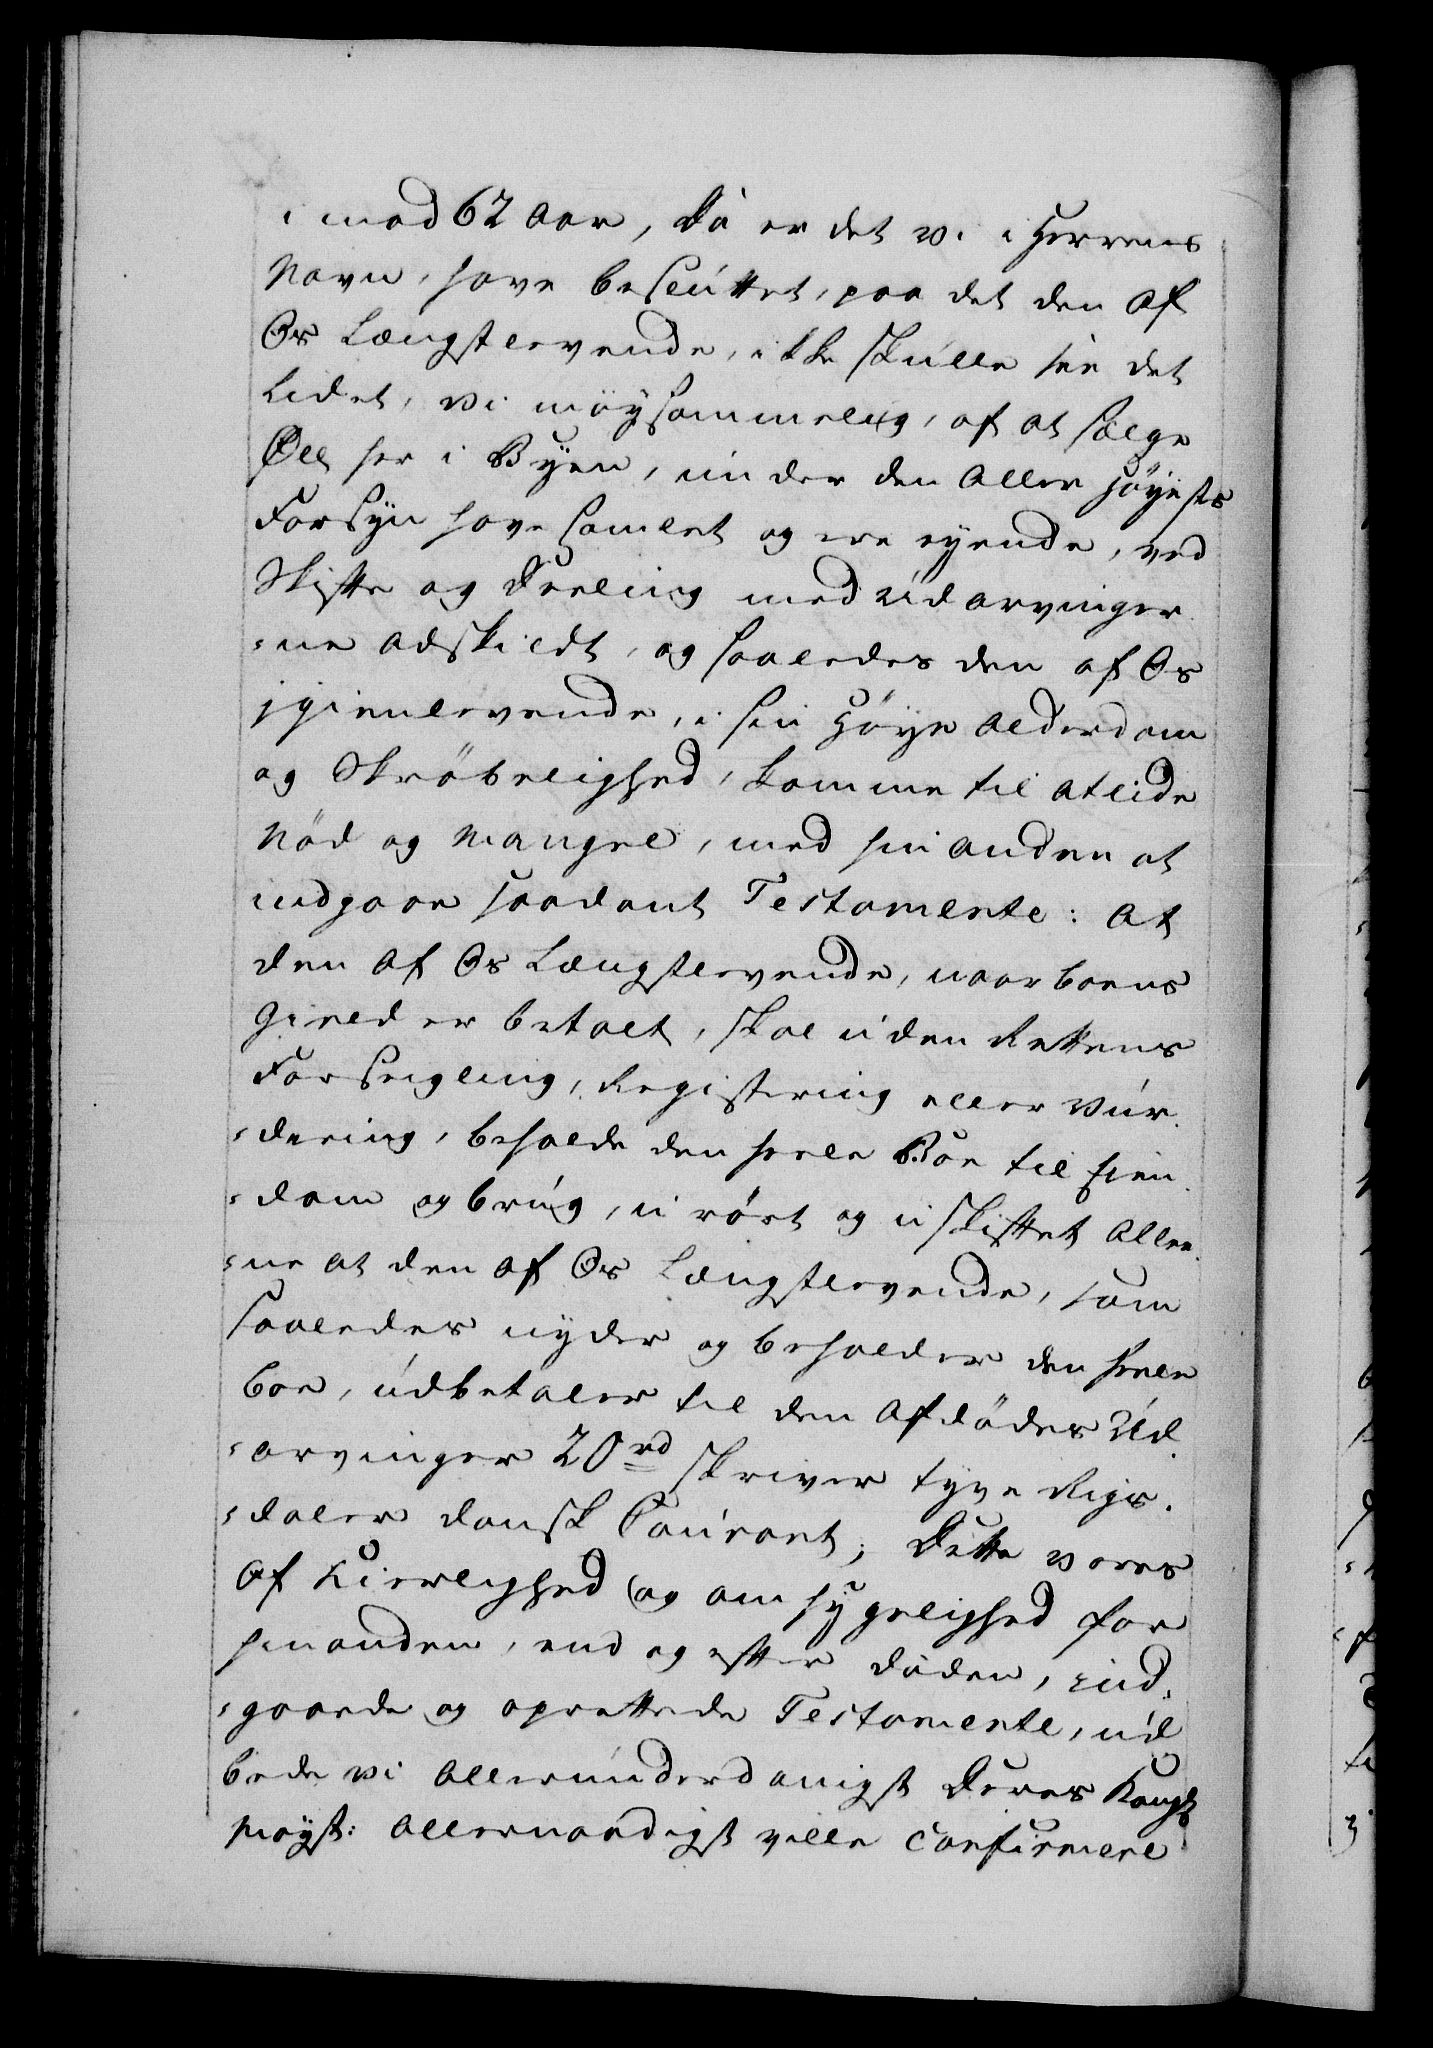 imod 62 Aar, Da er det vi i Herrens
Navn, have besluttet, paa det den af
Os Længstlevende, ikke skulle see det
Lidet, vi møysommelig, af at sælge
Øll her i Byen, under den Aller Høyestes
Forsyn have samlet og ere eyende, ved
Skifte og Deeling med Udarvinger
-ne adskildt, og saaledes den af Os
igienlevende, i sin Høye Alderdom
og Skrøbelighed, komme til at lide
Nød og Mangel, med hinanden at
indgaae saadant Testamente: At
den af Os Længstlevende, naar Boens
Gield er betalt, skal uden Rettens
Forsegling, Registering eller Vur-
-dering, beholde den heele Boe til Eien-
-dom og brug, urørt og uskiftet Alle-
-ne at den af Os Længstlevende, som
saaledes nyder og beholder den heele
Boe, udbetaler til den Afdødes Ud-
-arvinger 20 rd skriver tyve Rigs-
-daler dansk Courant; Dette vores
af Kierlighed og omhyggelighed for
hinanden, end og efter døden, ind-
-gaaede og oprettede Testamente, ud
bede vi Allerunderdanigst Deres Kongl
Mayst: Allernaadigst ville confirmere